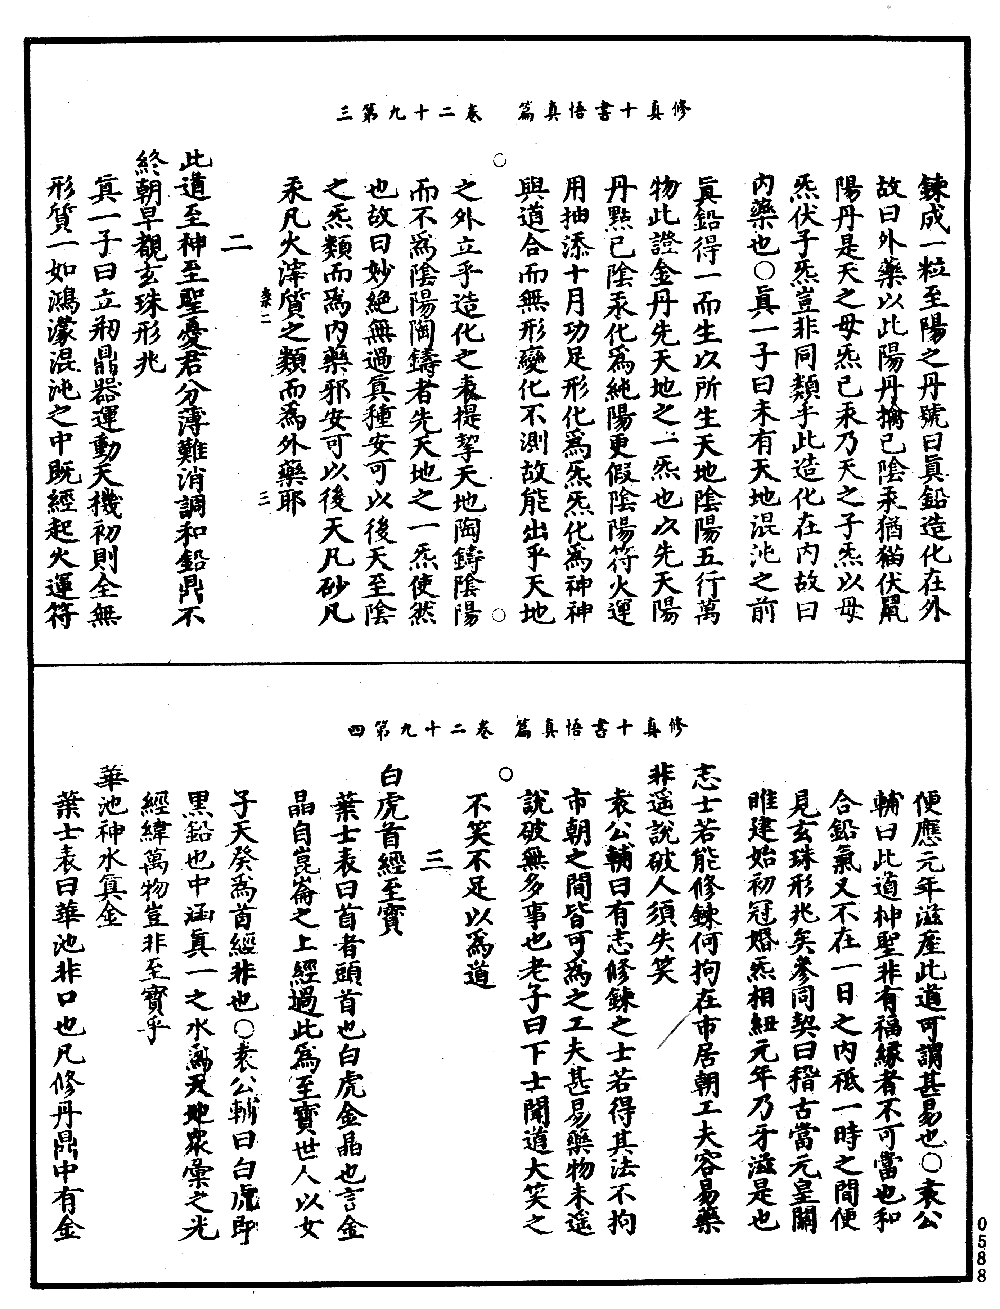 修真十書悟真篇　卷二十九第三
鍊成一粒至陽之丹號曰眞鉛造化在外
故曰外藥以此陽丹擒己陰汞猶猫伏鼠
陽丹是天之母炁己汞乃天之子炁以母
炁伏子炁豈非同類乎此造化在內故曰
內藥也○眞一子曰未有天地混沌之前
眞鉛得一而生以所生天地陰陽五行萬
物此證金丹先天地之一炁也以先天陽
丹點己陰汞化爲純陽更假陰陽符火運
用抽添十月功足形化爲炁炁化爲神神
與道合而無形變化不測故能出乎天地
之外立乎造化之表提挈天地陶鑄陰陽
而不爲陰陽陶鑄者先天地之一炁使然
也故曰妙絕無過眞種安可以後天至陰
之炁類而爲內藥邪安可以後天凡砂凡
汞凡火滓質之類而爲外藥耶
二
此道至神至聖憂君分薄難消調和鉛鼎不
終朝早覩玄珠形兆
眞一子曰立剏鼎器運動天機初則全無
形質一如鴻濛混沌之中既經起火運符
修真十書悟真篇　卷二十九第四
便應元年滋產此道可謂甚易也○袁公
輔曰此道神聖非有福緣者不可當也和
合鉛氣又不在一日之內秖一時之間便
見玄珠形兆矣參同契曰稽古當元皇關
睢建始初冠婚炁相紐元年乃牙滋是也
志士若能修鍊何拘在市居朝工夫容易藥
非遥說破人須失笑
袁公輔曰有志修鍊之士若得其法不拘
市朝之間皆可爲之工夫甚易藥物未遥
說破無多事也老子曰下士聞道大笑之
不笑不足以爲道
三
白虎首經至寶
葉士表曰首者頭首也白虎金晶也言金
晶自崑崙之上經過此爲至寶世人以女
子天癸爲首經非也○袁公輔曰白虎即
黑鉛也中涵眞一之水爲天地衆彙之光
經緯萬物豈非至寶乎
華池神水眞金
葉士表曰華池非口也凡修丹鼎中有金
0588